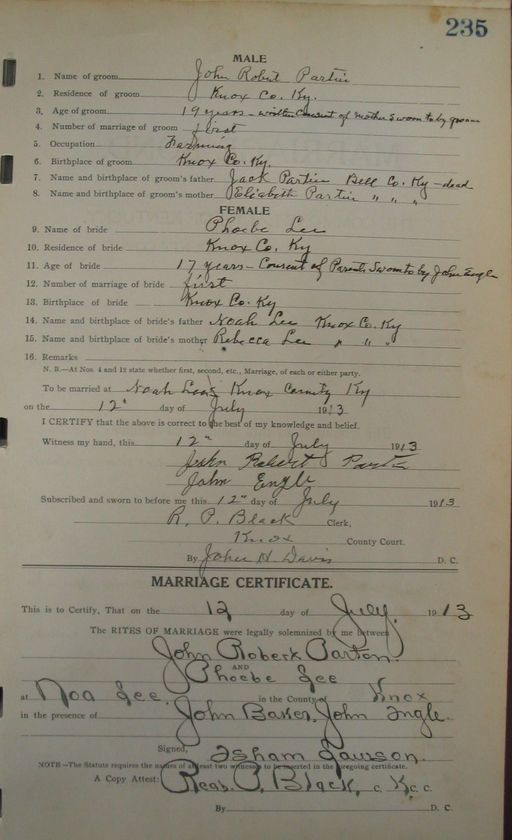 235
MALE
1. Name of groom John Robert Partin
2. Residence of groom Knox Co. Ky.
3. Age of groom 19 years - written consent of mother sworn to by groom
4. Number of marriage of groom first
5. Occupation Farming
6. Birthplace of groom Knox Co. Ky.
7. Name and birthplace of groom's father Jack Partin Bell Co. Ky - dead
8. Name and birthplace of groom's mother Elizabeth Partin " " "
FEMALE
9. Name of bride Phoebe Lee
10. Residence of bride Knox Co. Ky
11. Age of bride 17 years - Consent of Parents Sworn to by John Engle
12. Number of marriage of bride first
13. Birthplace of bride Knox Co. Ky
14. Name and birthplace of bride's father Noah Lee Knox Co. Ky
15. Name and birthplace of bride's mother Rebecca Lee " " "
16. Remarks
N. B.—At Nos. 4 and 12 state whether first, second, etc., Marriage, of each or either party.
To be married at Noah Lees Knox County Ky
on the 12" day of July 1913
I CERTIFY that the above is correct to the best of my knowledge and belief.
Witness my hand, this 12" day of July 1913
John Robert Partin
John Engle
Subscribed and sworn to before me this 12" day of July 1913
R. P. Black Clerk,
Knox County Court.
By John H. Davis D. C.
MARRIAGE CERTIFICATE.
This is to Certify, That on the 12 day of July, 1913
The RITES OF MARRIAGE were legally solemnized by me between
John Robert Parton.
AND
Phoebe Lee
at Noa Lee. in the County of Knox
in the presence of John Baker, John Ingle.
Signed, Isham Lawson.
NOTE—The Statute requires the names of at least two witnesses to be inserted in the foregoing certificate.
A Copy Attest: P. Black, C. K. C. C.
By D. C.